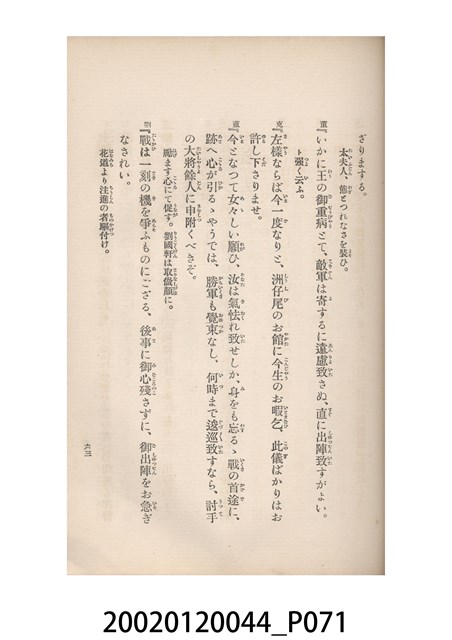 ざりまする。
太夫人、態とつれなさを裝ひ。
董『いかに王の御重病とて、敵軍は寄するに遠慮致さぬ、直に出陣致すがよい。
ト强く云ふ。
克『左樣ならば今一度なりと、洲仔尾のお館に今生のお暇乞、此儀ばかりはお
許し下さりませ。
董『今となつて女々しい願ひ、汝は氣怯れ致せしか、身をも忘るゝ戰の首途に、
跡へ心が引るゝやうでは、勝軍も覺束なし、何時まで逡巡致すなら、討手
の大將餘人に申附くべきぞ。
勵ます心にて促す。劉國軒は取做顏に。
劉『戰は一刻の機を爭ふものにござる、後事に御心殘さずに、御出陣をお急ぎ
なされい。
花道より注進の者驅付け。
六三
20020120044_P071